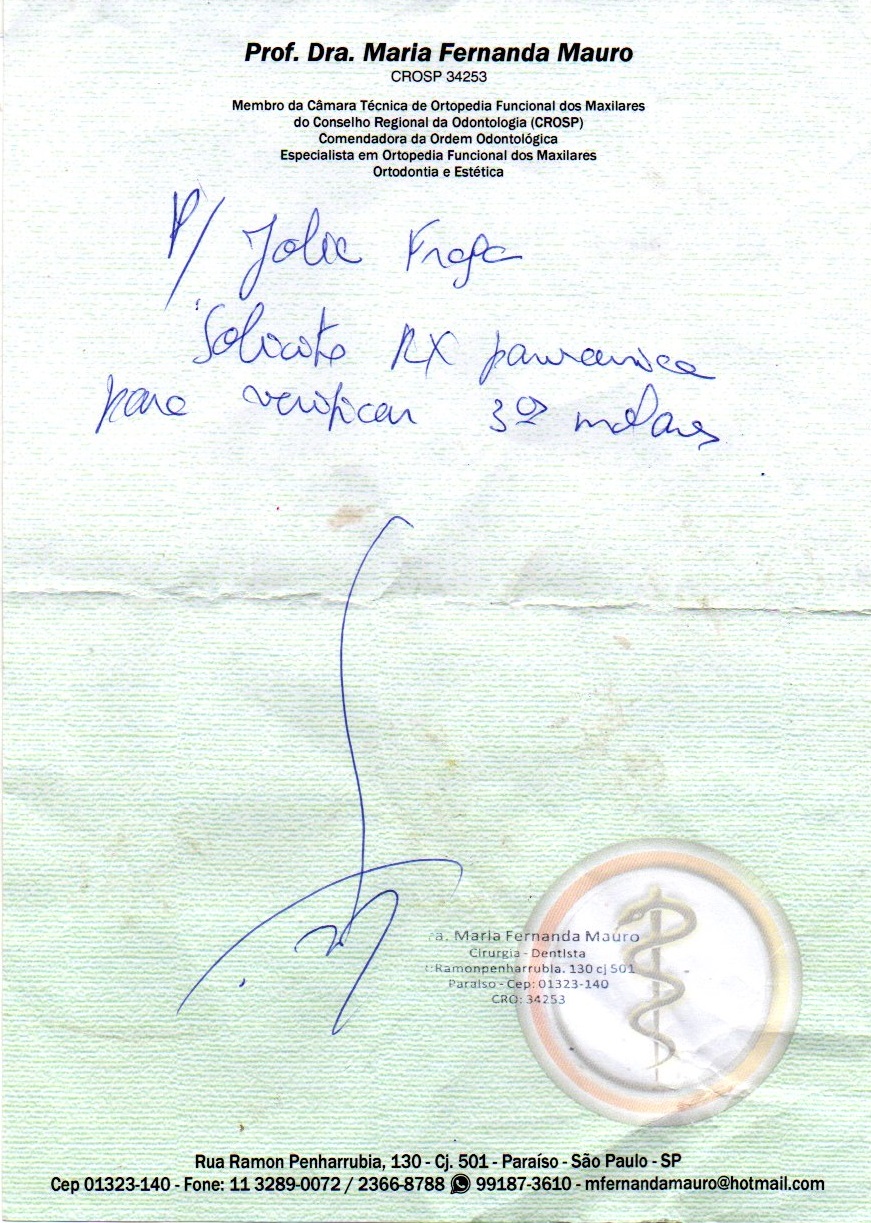 Prof. Dra. Maria Fernanda Mauro
CROSP 34253
Membro da Câmara Técnica de Ortopedia Funcional dos Maxilares
do Conselho Regional da Odontologia (CROSP)
Comendadora da Ordem Odontológica
Especialista em Ortopedia Funcional dos Maxilares
Ortodontia e Estética
P/ Fraga
Solicito RX panoramica
para verificar 3ºs molares
a. Maria Fernanda Mauro
Cirurgia - Dentista
Ramonpenharrubia. 130 cj 501
Paraiso - Cep: 01323-140
CRO: 34253
Rua Ramon Penharrubia, 130 - Cj. 501 - Paraíso - São Paulo - SP
Cep 01323-140 - Fone: 11 3289-0072 / 2366-8788 99187-3610 - mfernandamauro@hotmail.com